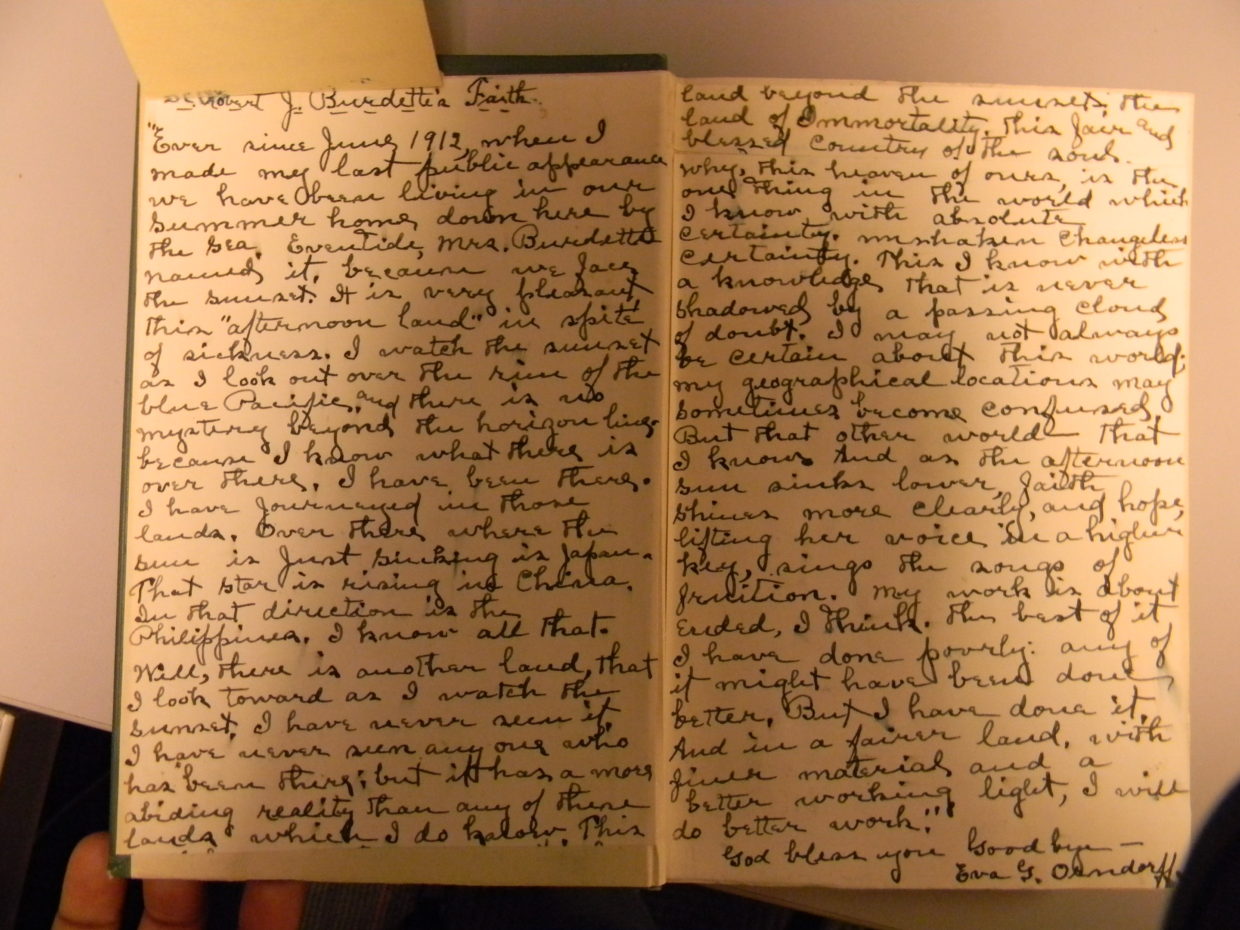 Robert J. Burdette's Faith.
"Ever since June 1912, when I
made my last public appearance
we have been living in our
summer home, down here by
the sea. Eventide, Mrs. Burdette
named it, because we face
the sunset. It is very pleasant,
this "afternoon land" in spite
of sickness. I watch the sunset
as I look out over the rim of the
blue Pacific, and there is no
mystery beyond the horizon line,
because I know what there is
over there. I have been there.
I have journeyed in those
lands. Over there where the
sun is just sinking is Japan.
That star is rising in China.
In that direction is the
Philippines. I know all that.
Well, there is another land, that
I look toward as I watch the
sunset. I have never seen it.
I have never seen any one who
has been there; but it has a more
abiding reality than any of these
lands which I do know. This
land beyond the sunset, the
land of Immortality, this fair and
blessed country of the soul.
why, this heaven of ours, is the
one thing in the world which
I know with absolute
certainty. unshaken changeless
certainty. This I know with
a knowledge that is never
shadowed by a passing cloud
of doubt. I may not always
be certain about this world;
my geographical locations may
sometimes become confused,
But that other world - that
I know. And as the afternoon
sun sinks lower, faith
shines more clearly, and hope,
lifting her voice in a higher
key, sings the songs of
fruition. My work is about
ended, I think. The best of it
I have done poorly: any of
it might have been done
better, But I have done it.
And in a fairer land, with
finer material and a
better working light, I will
do better work."
God bless you Good bye —
Eva G. Orndorff.